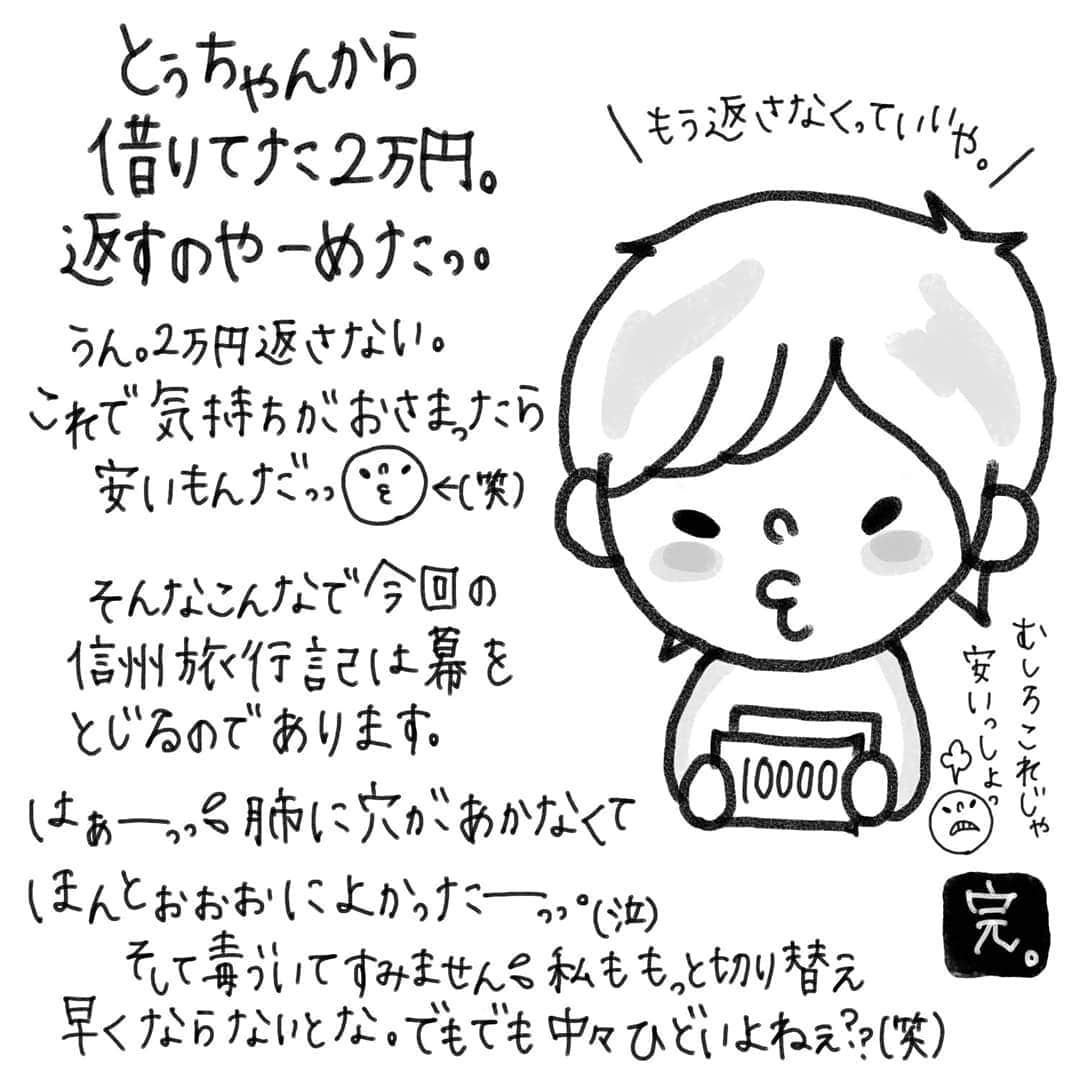 とぅちゃんから
借りてた2万円。
返すのやーめたっ。
＼もう返さなくっていいや。／
うん。2万円返さない。
これで気持ちがおさまったら
安いもんだっっ←(笑)
そんなこんなで今回の
信州旅行記は幕を
とじるのであります。
10000
むしろこれじゃ
安いっしょっ
はぁーっっ肺に穴があかなくて
ほんとぉぉおによかったーっっ。(泣)
そして毒づいてすみません私ももっと切り替え
早くならないとな。でもでも中々ひどいよねぇ??(笑)
完。